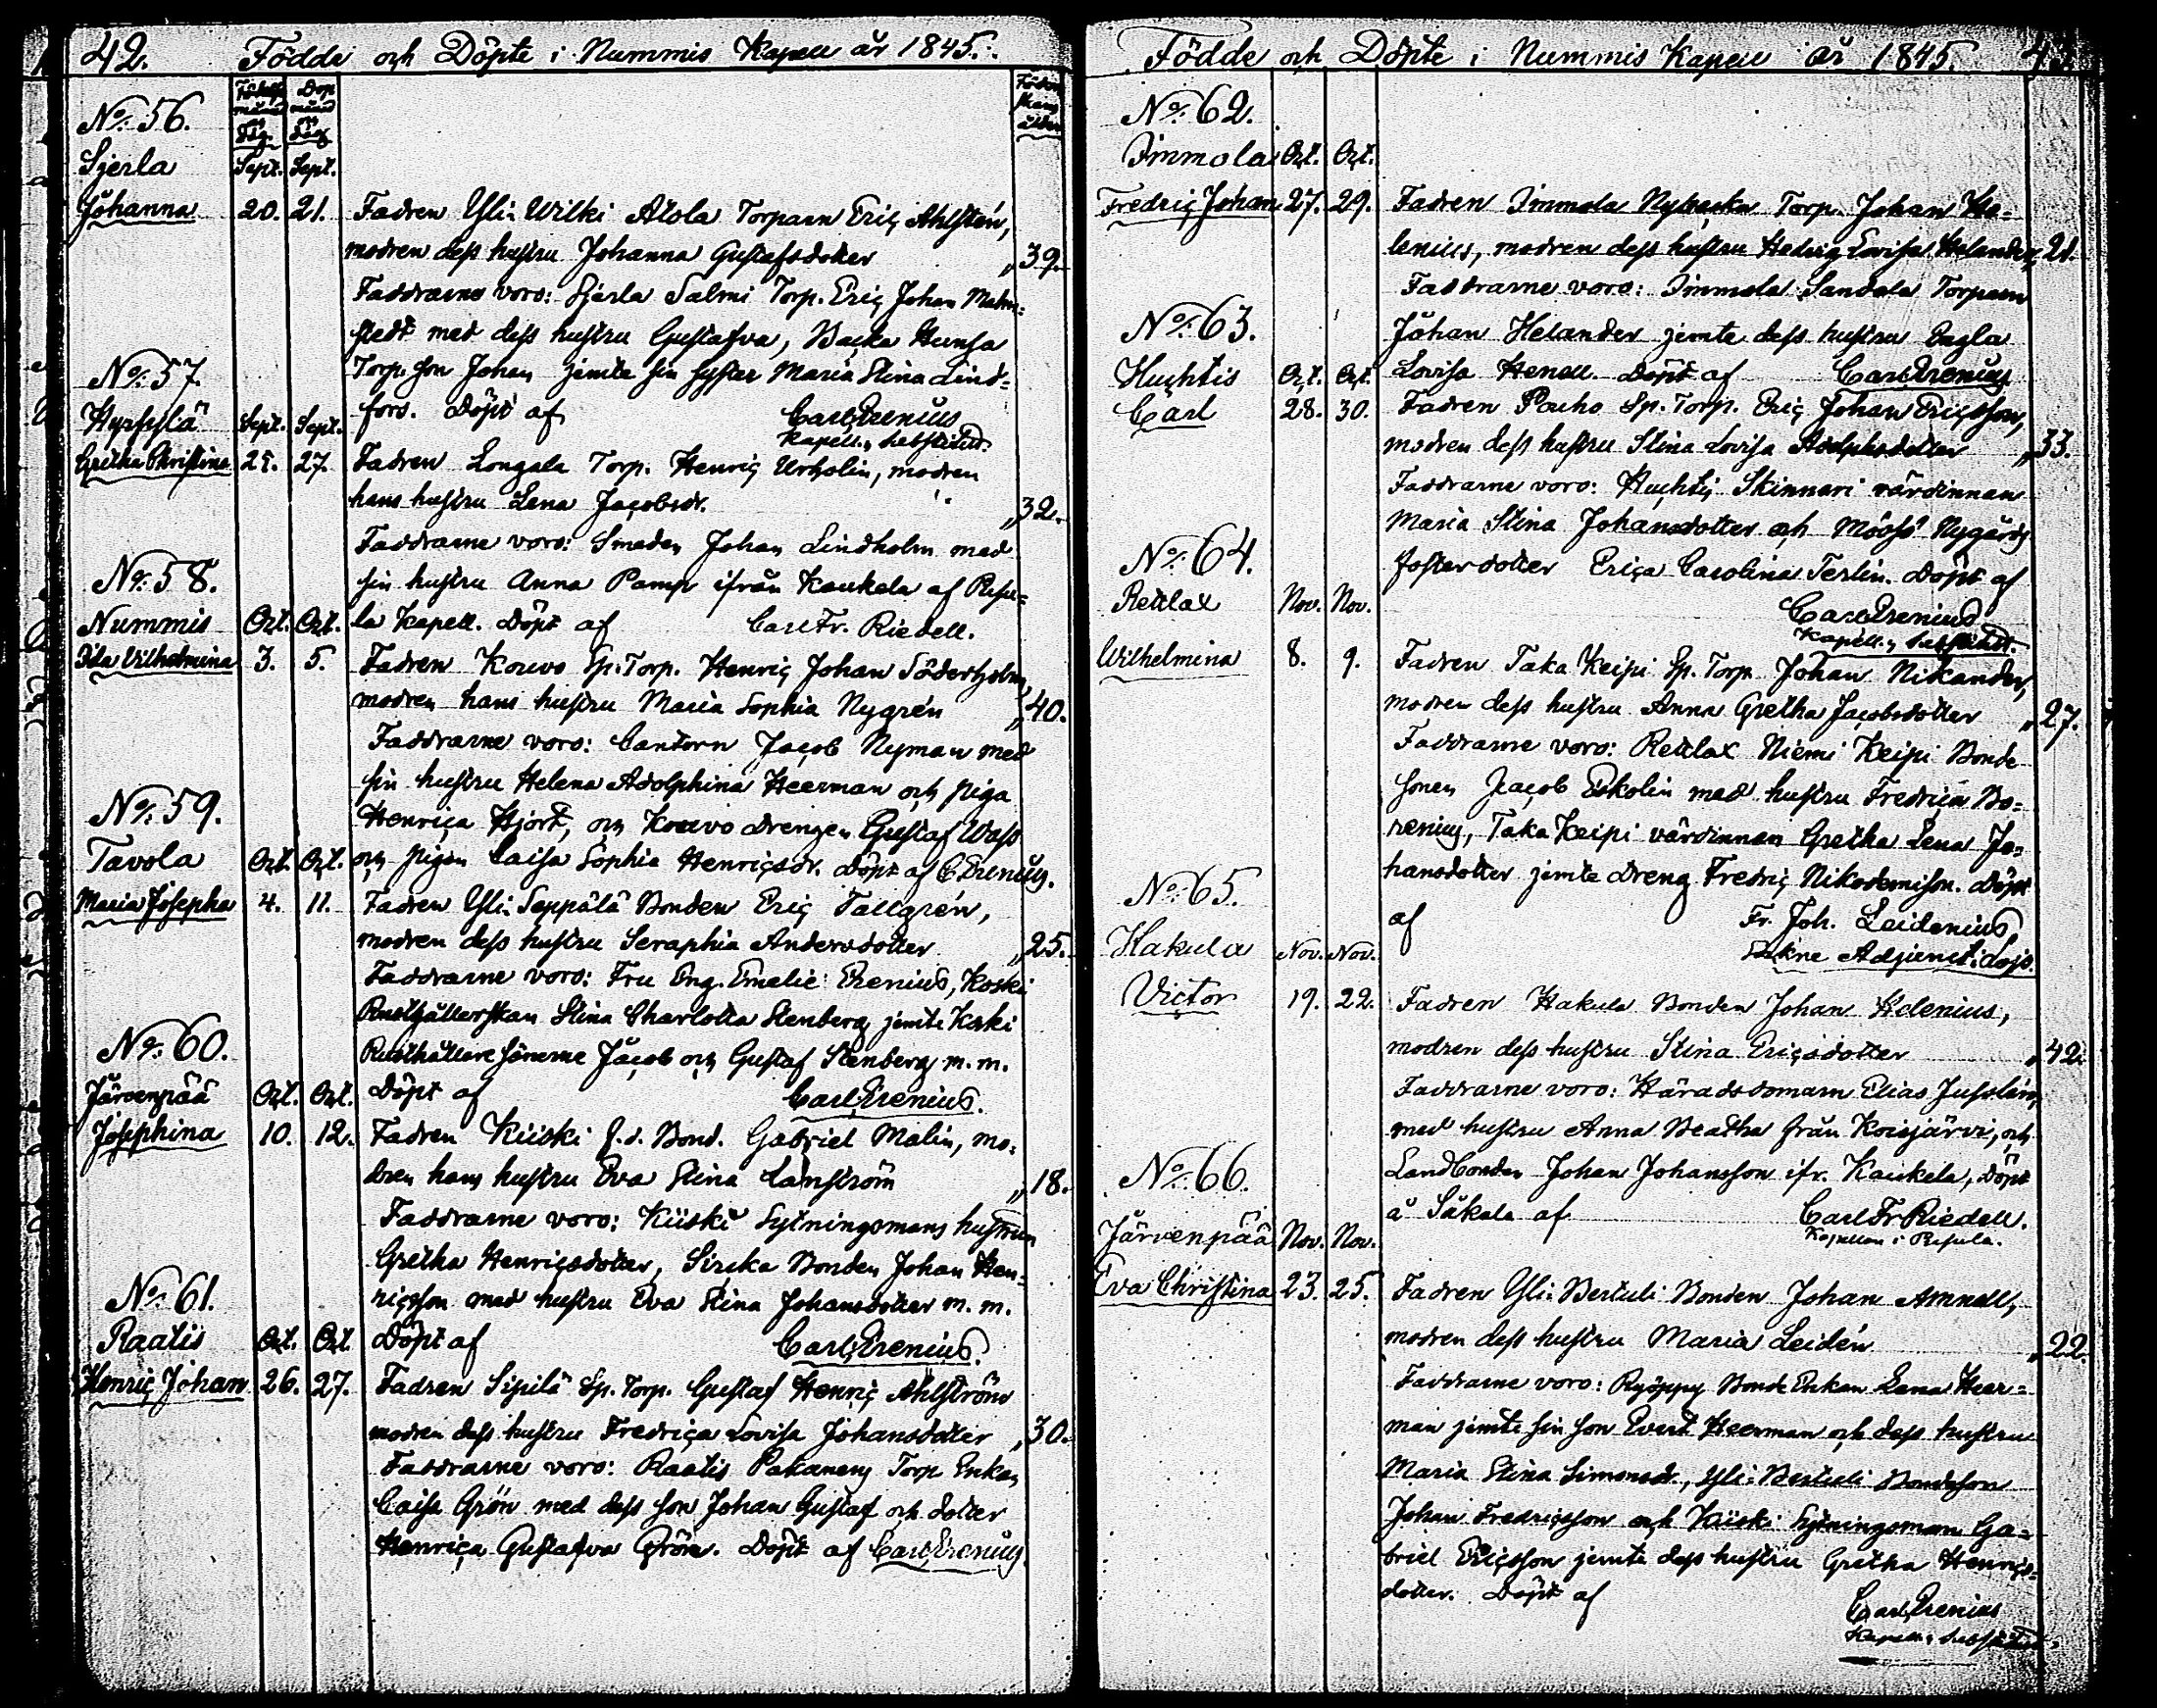 42. Födda och Döpte i Nummis Kapell år 1845.
Födelse månad och Dag. Dop månad och Dag Föderskans ålder
No. 56.
Sjerla Sept. Sept.
Johanna 20. 21. Fadren Yli-Wilki Alola Torparn Eriç Ahlstén,
modren dess hustru Johanna Gustafsdotter „39.
Faddrarne voro: Sjerla Salmi Torp. Eriç Johan Malm-
stedt med dess hustru Gustafva, Backa Hunsa
No. 57. Torp. son Johan jemte sin syster Maria Stina Lind-
Hyrsylä Sept. Sept. fors. Döpt af Carl Prenius
Kapell.s Substitut.
Gretha Christina 25. 27. Fadren Longala Torp. Henriç Urholin, modren
hans hustru Lena Jaçobsdr. „32.
Faddrarne voro: Smeden Johan Lindholm med
No. 58. sin hustru Anna Pamp ifrån Kaukela af Pusu-
Nummis Oçt. Oçt. la Kapell. Döpt af Carl Fr. Riedell.
Ida Vilhelmina 3. 5. Fadren Kouvo Sp. Torp. Henriç Johan Söderholm,
modren hans hustru Maria Sophia Nygrén „40.
Faddrarne voro: Cantorn Jaçob Nyman med
sin hustru Helena Adolphina Heerman och piga
No. 59. Henriça Hjort, och Kouvo drengen Gustaf Wass
Tavola Oçt. Oçt. och pigan Caisa Sophia Henriçsdr. Döpt af C. Prenius.
Maria Josepha 4. 11. Fadren Yli-Seppälä Bonden Eriç Tallgrén,
modren dess hustru Seraphia Andersdotter „25.
Faddrarne voro: Fru Eng. Emelie Prenius, Koski
Rusthållerskan Stina Charlotta Stenberg jemte Koski
No. 60. Rusthållare sönerne Jaçob och Gustaf Stenberg m. m.
Järvenpää Oçt. Oçt. Döpt af Carl Prenius.
Josephina 10. 12. Fadren Kiiski f.d. Bond. Gabriel Malin, mo-
dren hans hustru Eva Stina Lanström „18.
Faddrarne voro: Kiiski Sytningsmans hustrun
Gretha Henriçsdotter, Sirçka Bonden Johan Hen-
No. 61. riçsson med hustru Eva Stina Johansdotter m. m.
Raatis Oçt. Oçt. Döpt af Carl Prenius.
Henriç Johan 26. 27. Fadren Sipilä Sp. Torp. Gustaf Henriç Ahlström
modren dess hustru Fredriça Lovisa Johansdotter „30.
Faddrarne voro: Raatis Pakanens Torp Enkan
Caisa Grön med dess son Johan Gustaf och dotter
Henriça Gustafva Grön. Döpt af Carl Prenius.
Födde och Döpte i Nummis Kapell år 1845. 43.
No. 62.
Immola Oçt. Oçt.
Fredriç Johan 27. 29. Fadren Immola Nybacka Torp. Johan He-
lenius, modren dess hustru Hedvig Lovisa Helander, 21.
Faddrarne voro: Immola Sandola Torparn
No. 63. Johan Helander jemte dess hustru Eagla
Huçhtis Oçt. Oçt. Lovisa Henell. Döpt af Carl Prenius
Carl 28. 30. Fadren Pouho Sp. Torp. Eriç Johan Eriçsson,
modren dess hustru Stina Lovisa Adolphsdotter „33.
Faddrarne voro: Huçhtis Skinnari värdinnan
Maria Stina Johansdotter och Nygårds
No. 64. fosterdotter Eriça Carolina Terlin. Döpt af
Retlax Nov. Nov. Carl Prenius
Kapell.s Substitut.
Wilhelmina 8. 9. Fadren Taka Keipi Sp. Torp. Johan Nikander,
modren dess hustru Anna Gretha Jaçobsdotter „27.
Faddrarne voro: Retlax Niemi Keipi Bonde
sonen Jaçob Eskolin med hustru Fredriça Bo-
renius, Taka Keipi värdinnan Gretha Lena Jo-
No. 65. hansdotter jemte dreng Fredriç Nikodemison. Döpt
af Fr. Joh. Leidenius
Hakula Nov. Nov. Sakne Adjunct i Lojo.
Victor 19. 22. Fadren Hakula Bonden Johan Helenius,
modren dess hustru Stina Eriçsdotter „42.
Faddrarne voro: Häradsdomarn Elias Jusslin,
med hustru Anna Beatha från Koisjärvi, och
No. 66. Landbonden Johan Johansson ifr. Kaukela, Döpt
å Säkala af Carl Fr Riedell.
Järvenpää Nov. Nov. Kapellan i Pusula.
Eva Christina 23. 25. Fadren Yli-Bertuli Bonden Johan Amnell,
modren dess hustru Maria Leidén „22.
Faddrarne voro: Ryöppy Bonde Enkan Lena Heer-
man jemte sin son Evert Heerman och dess hustru
Maria Stina Simonsdr., Yli-Bertuli Bondeson
Johan Fredriçsson och Kiiski Sytningsman Ga-
briel Eriçsson jemte dess hustru Gretha Henriçs-
dotter. Döpt af
Carl Prenius
Kapell.s Substitut.